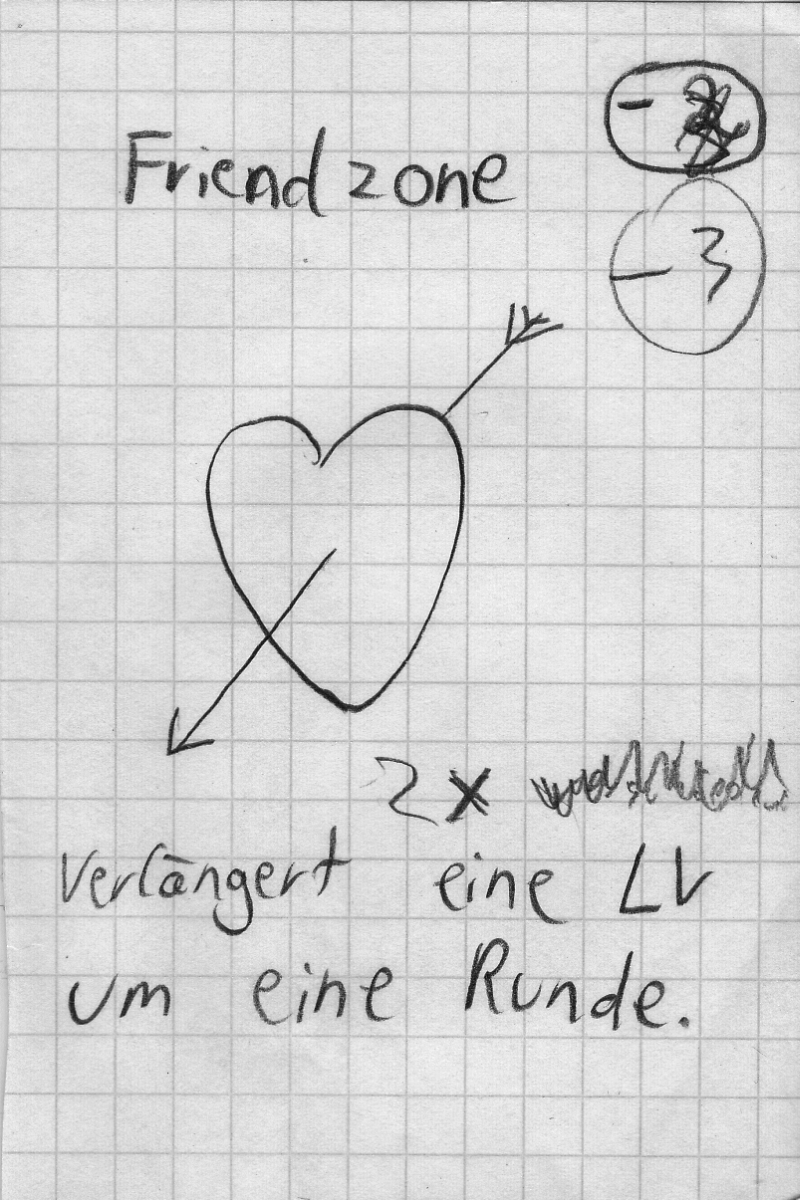 Friendzone
-
-3
2x
Verlängert eine LV
um eine Runde.